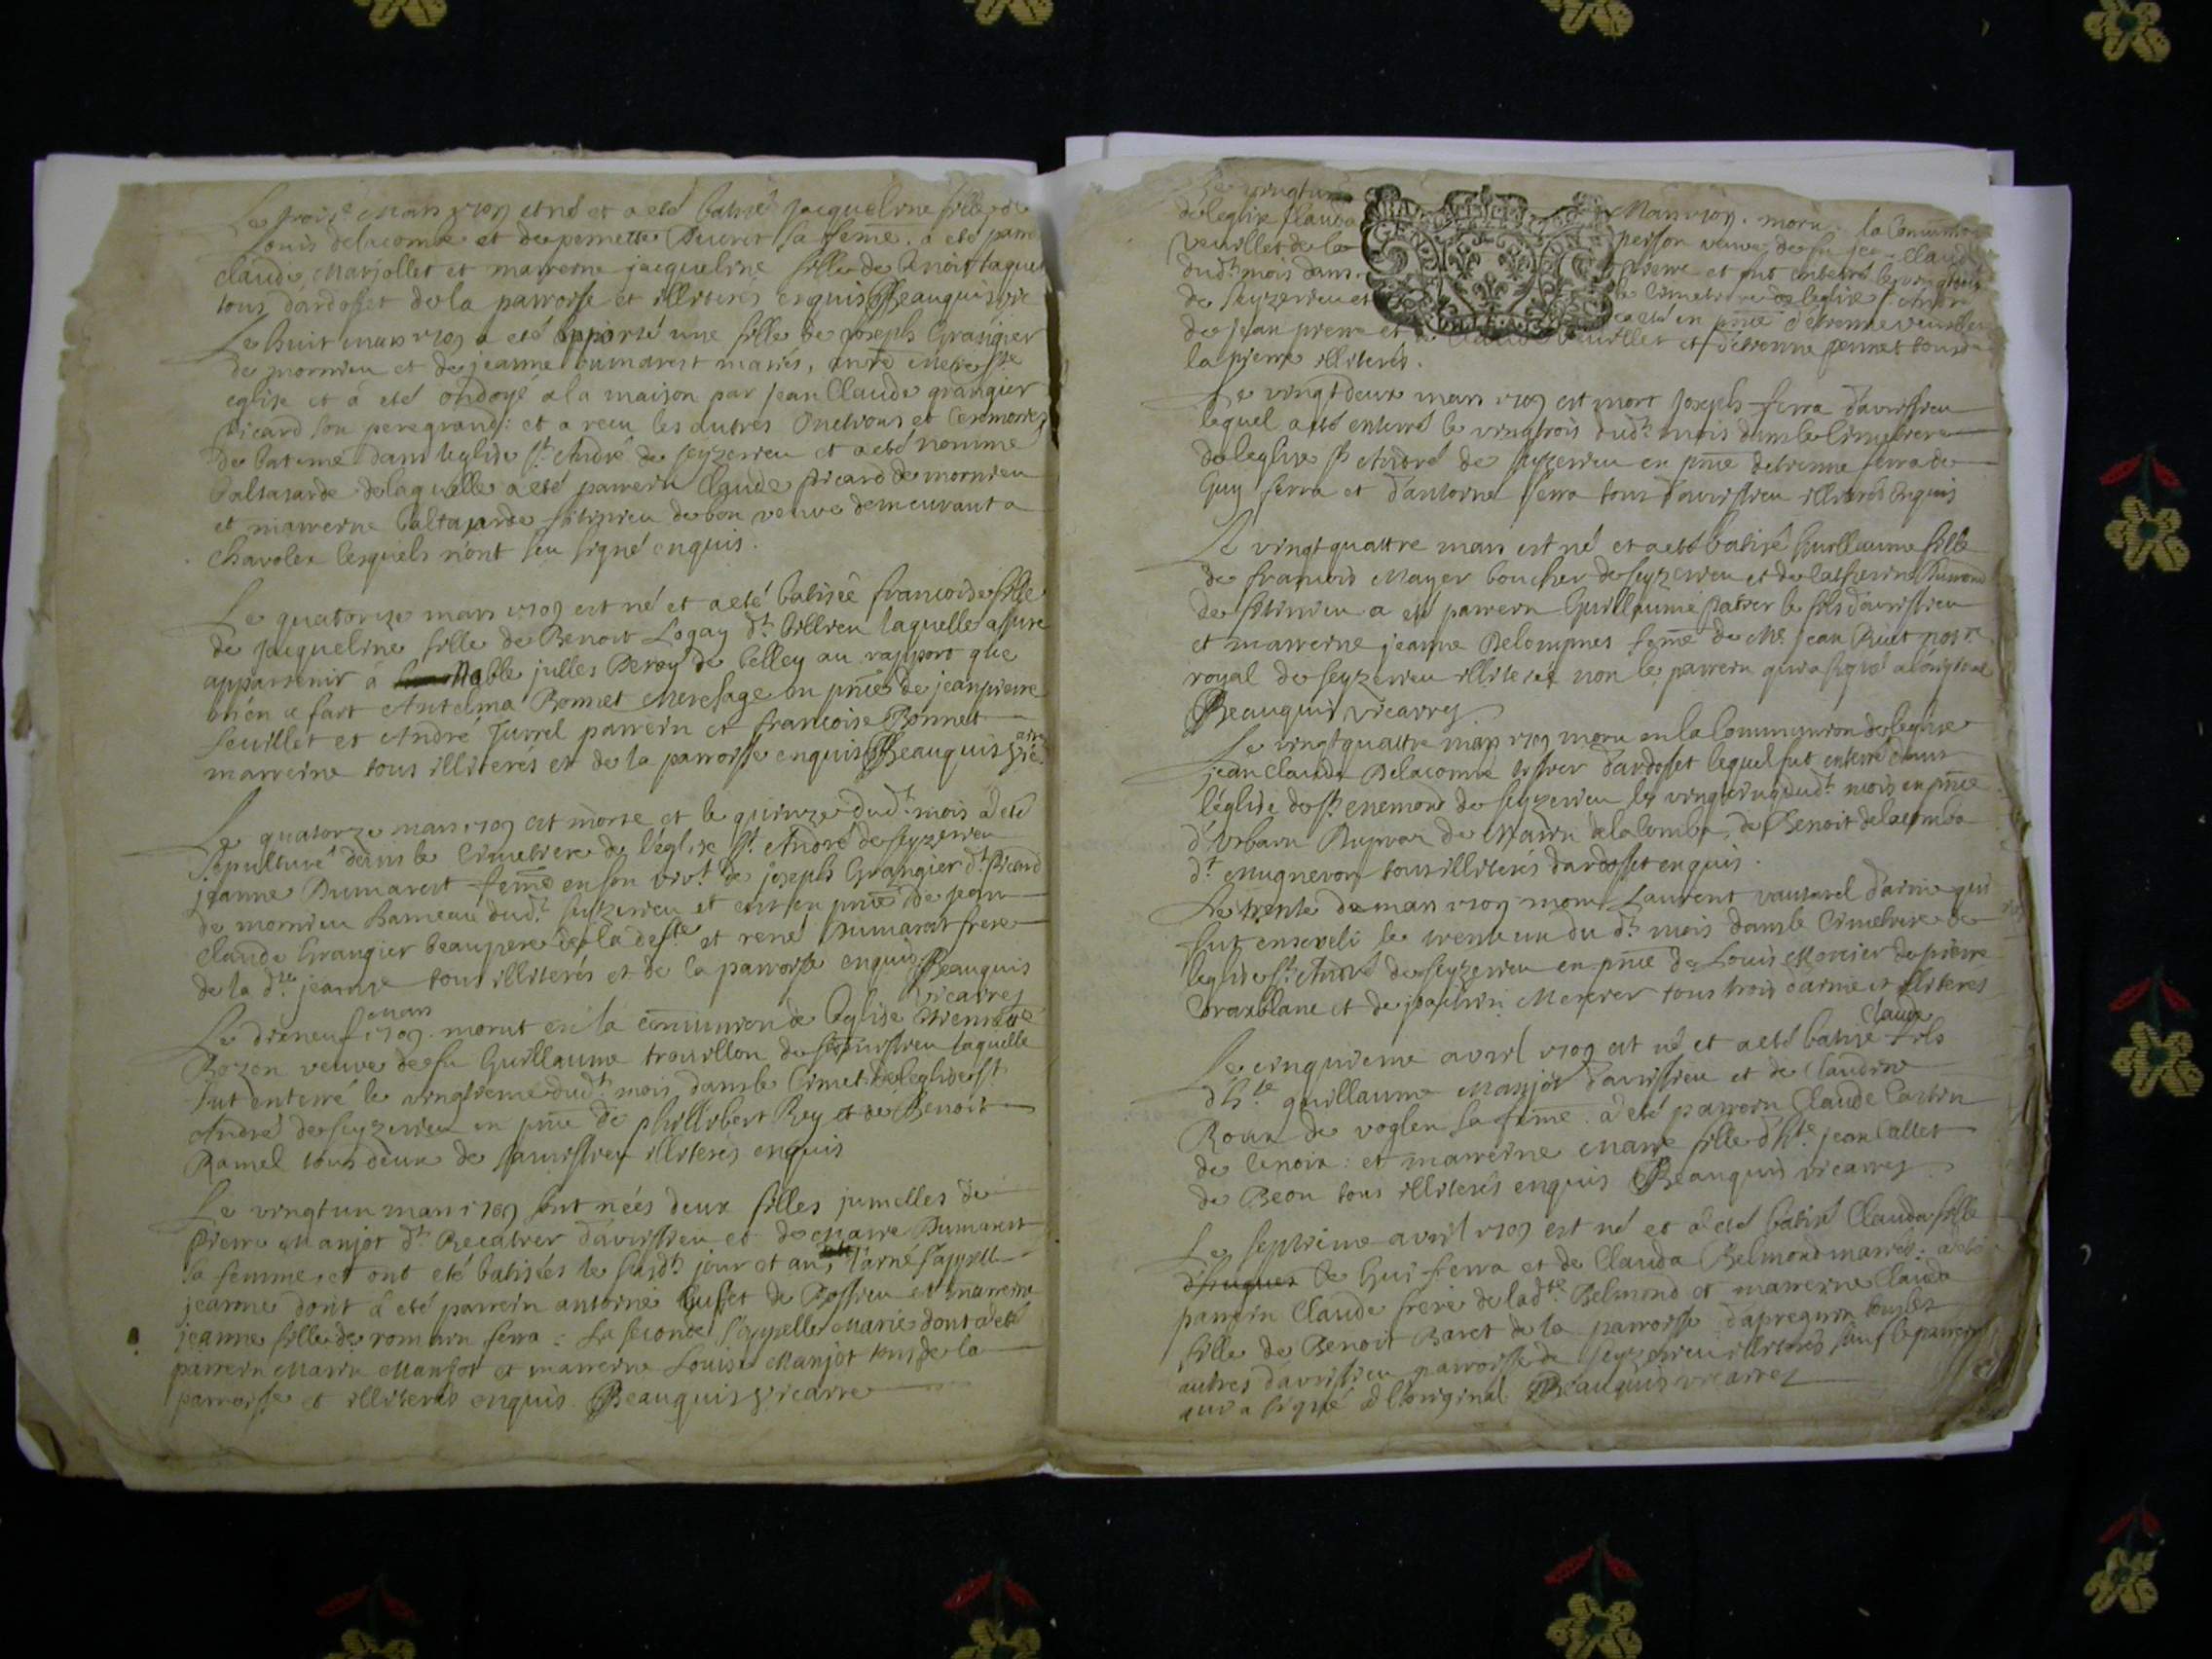 Le troise mars 1709 est né et a eté batisé jacqueline fille de
Louis delacombe et de pernette Ducret sa feme. a eté parrein
claude Marjollet et marreine jacqueline fille de benoit
tous d'ardosset de la parroisse et illiterés enquis Beauquis vic
Le huit mars 1709 a eté apporté une fille de joseph Grangier
de mornieu et de jeanne Dumarest mariés, a Mere Ste
eglise et a eté ondoyé a la maison par jean Claude grangier
picard son peregrand: et a receu les autres Onctions et Ceremonies
de bateme dans l'eglise St. André de seyzerieu et a eté nommé
baltasarde de laquelle a eté parrein Claude picard de mornieu
et marreine baltasarde de bon veuve demeurant a
Chavolex lesquels n'ont seu signé enquis.
Le quatorze mars 1709 est né et a eté batisée francoise fille
de jacqueline fille de Benoit Logay dt. billieu laquelle assure
appartenir a Noble julles Deroy de belley au rapport que
m'en a fait Antelma Bonnet Mersage en pnce de jeanpierre
Seuillet et André Juvrel parrein et francoise Bonnet
marreine tous illiterés et de la parroisse enquis Beauquis vicaire
Le quatorze mars 1709 est morte et le quinze dudt. mois a eté
Sepulturé dans le Cimetiere de l'église St. André de seyzerieu
jeanne Dumarest feme en son vivt. de joseph Grangier dt. Picard
de mornieu hameau dudt. seyzerieu et ce en pnce de jean
Claude Grangier beaupere de la deste et rené Dumarest frere
de la dte jeanne tous illiterés et de la parroisse enquis Beauquis
vicaire
Le dixneuf mars 1709. morut en la comunion de l'eglise
Rozon veuve de fu Guillaume trouillon de laquelle
fut enterré le vingtieme dudt. mois dans le Cimet. de l'eglise St.
André de seyzerieu en pnce de phillibert Rey et de Benoit
Ramel tous deux de illiterés enquis
Le vingt un mars 1709 sont nées deux filles jumelles de
pierre Manjot dt. Recatier d'avrissieu et de Marie Dumarest
sa femme, et ont eté batisées le susdt. jour et an, l'ainé s'appelle
jeanne dont a eté parrein antoine de Rossieu et marreine
jeanne fille de romain ferra: la seconde s'appelle Marie dont a eté
parrein Marin Manjot et marreine Louise Manjot tous de la
parroisse et illiterés enquis Beauquis vicaire
Le vingtun Mars 1709. moru la Comunion
de leglise Clauda person veuve de fu jea- Claude
Veuillet de la pierre et fut enterré le vingtdeux
dudt. mois dans le Cimetiere de leglise St. André
de seyzerieu et ca eté en pnce d'etienne veuillet
de jean pierre et de Claude Veuillet et d'etienne pernet tous de
la pierre illiterés.
Le vingtdeux mars 1709 est mort Joseph ferra d'avrissieu
lequel a eté enterré le vingtrois dudt. mois dans le Cimetiere
de leglise St. André de seyzerieu en pnce d'etienne ferra de
Guy ferra et d'antoine ferra tous d'avrissieu illiterés Enquis
Le vingtquattre mars est né et a eté batisé Guillauma fille
de francois Mayer boucher de seyzerieu et de Catherine Dumond
de a eté parrein Guillaume patier le fils d'avrissieu
et marreine jeanne Delompnes feme de Me. jean Riet nore
royal de seyzerieu illiterés non le parrein qui a signé a l'original
Beauquis vicaire
Le vingtquattre mars 1709 moru en la Communion de leglise
jean claude Delacombe d'ardosset lequel fut enterré dans
l'église de St. enemond de seyzerieu le vingtcinq dudt. mois en pnce
d'Urbain de Marin delacomba, de Benoit delacomba
dt. mugneron tous illiterés dardosset enquis.
Le trente de mars 1709 moru Laurent vautarel d'ainie qui
fut enseveli le trente un du dt. mois dans le Cimetiere de
leglise St. André de seyzerieu en pnce de Louis Mercier de pierre
Coraxblanc et de joachim Mercier tous trois d'ainie et illiterés
Le cinquieme avril 1709 est né et a eté batisé Claude fils
d'hte guillaume Manjot d'avrissieu et de Claudine
Roux de voglen sa feme. a eté parrein Claude Cartin
de lenoix: et marreine Marie fille d'hte. jean Callet
de Beon tous illiterés enquis Beauquis vicaire
Le septieme avril 1709 est né et a eté batisé Clauda fille
d'hugues de Gui ferra et de Clauda Belmond mariés: a eté
parrein Claude frere de ladte. Belmond et marreine Clauda
fille de Benoit Baret de la parroisse d'apregnin tous les
autres d'avrissieu parroisse de seyzerieu illiterés sauf le parrein
qui a signé a l'original Beauquis vicaire